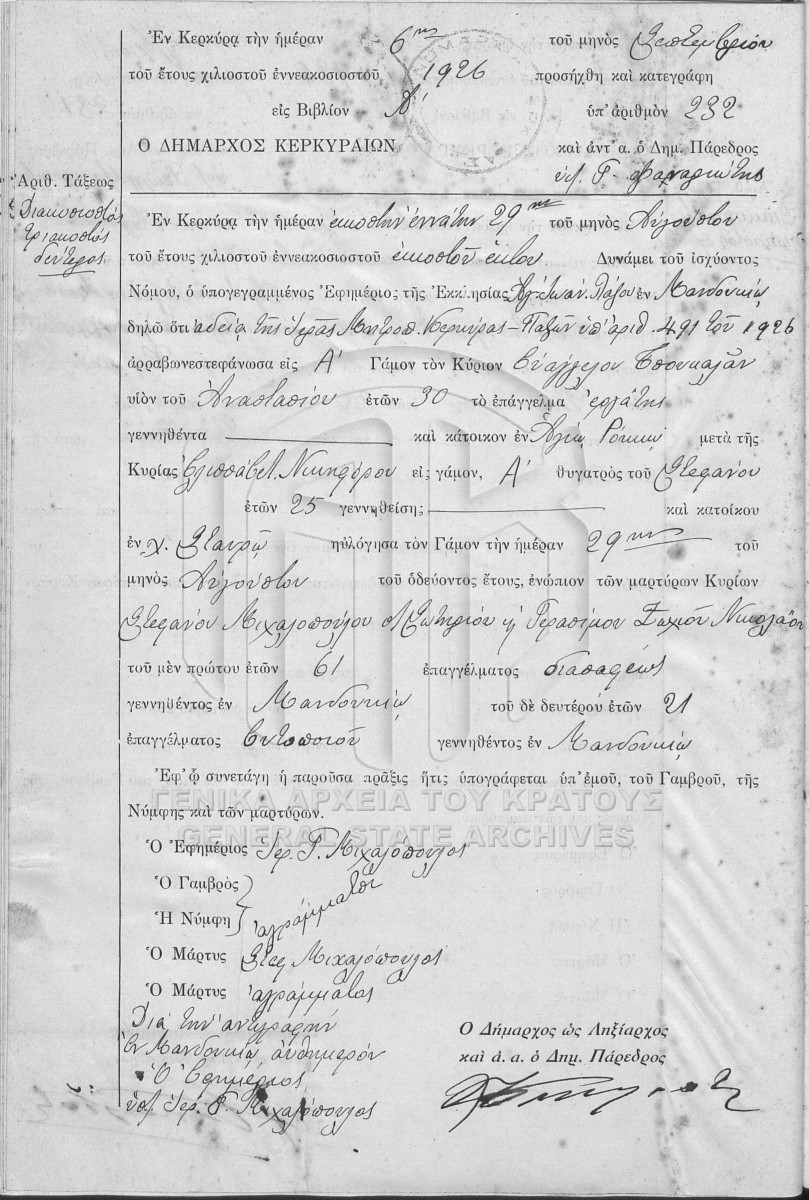 Ἐν Κερκύρᾳ τὴν ἡμέραν 6ην τοῦ μηνὸς Σεπτεμβρίου
τοῦ ἔτους χιλιοστοῦ ἐννεακοσιοστοῦ 1926 προσήχθη καὶ κατεγράφη
εἰς Βιβλίον Α΄ ὑπ' ἀριθμὸν 232
Ο ΔΗΜΑΡΧΟΣ ΚΕΡΚΥΡΑΙΩΝ καὶ ἀντ' α. ὁ Δημ. Πάρεδρος
Ἀριθ. Τάξεως
Διακοσιοστός
τριακοστός
δεύτερος
Ἐν Κερκύρᾳ τὴν ἡμέραν εἰκοστὴν ἐννάτην 29ην τοῦ μηνὸς Αὐγούστου
τοῦ ἔτους χιλιοστοῦ ἐννεακοσιοστοῦ εἰκοστοῦ ἕκτου Δυνάμει τοῦ ἰσχύοντος
Νόμου, ὁ ὑπογεγραμμένος Ἐφημέριος τῆς Ἐκκλησίας Ἁγ. Ἰωάν. ἐν Μανδουκίῳ
δηλῶ ὅτι ἀδείᾳ τῆς Ἱερᾶς Μητροπ. Κερκύρας - Παξῶν ὑπ' ἀριθ. 491 τοῦ 1926
ἀρραβωνεστεφάνωσα εἰς Α' Γάμον τὸν Κύριον Εὐάγγελον Τσουκαλᾶν
υἱὸν τοῦ Ἀναστασίου ἐτῶν 30 τὸ ἐπάγγελμα ἐργάτης
γεννηθέντα καὶ κάτοικον ἐν Ἁγίῳ Ρόκκῳ μετὰ τῆς
Κυρίας Ἐλισσάβετ. Νικηφόρου εἰς γάμον, Α' θυγατρὸς τοῦ Στεφάνου
ἐτῶν 25 γεννηθείσης καὶ κατοίκου
ἐν χ. Σταυρῷ ηὐλόγησα τὸν Γάμον τὴν ἡμέραν 29ην τοῦ
μηνὸς Αὐγούστου τοῦ ὁδεύοντος ἔτους, ἐνώπιον τῶν μαρτύρων Κυρίων
Στεφάνου Μιχαλοπούλου Σωτηρίου ἢ Γερασίμου Νικολάου
τοῦ μὲν πρώτου ἐτῶν 61 ἐπαγγέλματος
γεννηθέντος ἐν Μανδουκίῳ τοῦ δὲ δευτέρου ἐτῶν 21
ἐπαγγέλματος γεννηθέντος ἐν Μανδουκίῳ
Ἐφ' ᾧ συνετάγη ἡ παροῦσα πρᾶξις ἥτις ὑπογράφεται ὑπ' ἐμοῦ, τοῦ Γαμβροῦ, τῆς
Νύμφης καὶ τῶν μαρτύρων.
ΓΕΝΙΚΑ ΑΡΧΕΙΑ ΤΟΥ ΚΡΑΤΟΥΣ
GENERAL STATE ARCHIVES
Ὁ Ἐφημέριος Ἱερ. Γ. Μιχαλόπουλος
Ὁ Γαμβρὸς
Ἡ Νύμφη ἀγράμματοι
Ὁ Μάρτυς Στεφ Μιχαλόπουλος
Ὁ Μάρτυς ἀγράμματος
Διὰ τὴν ἀντιγραφὴν
Ἐν Μανδουκίῳ αὐθημερόν
Ὁ Ἐφημέριος
ὑπ. Ἱερ. Γ. Μιχαλόπουλος
Ο Δήμαρχος ὡς Ληξίαρχος
καὶ ἀ. α. ὁ Δημ. Πάρεδρος